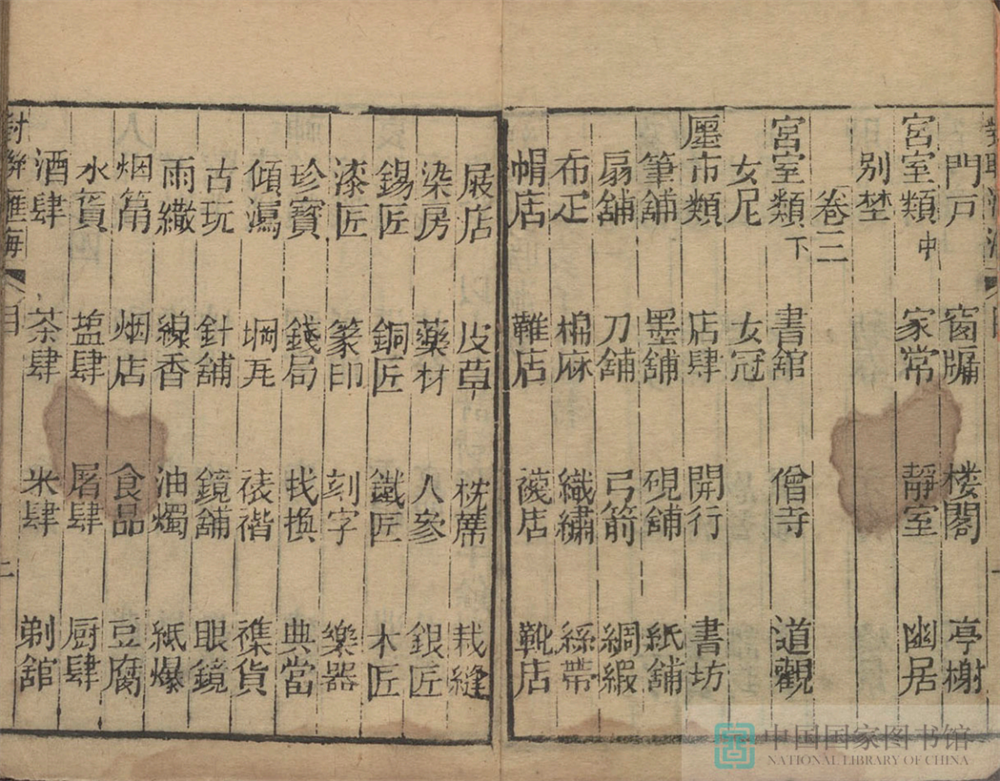 門戸 窗牖 楼閣 亭榭
宮室類中 家常 靜室 幽居
别埜
卷三
宮室類下 書舘 僧寺 道觀
女尼 女冠
廛市類 店肆 開行 書坊
筆舖 墨舖 硯舖 紙舖
扇舖 刀舖 弓箭 綢緞
布疋 棉麻 織繡 絲帶
帽店 鞋店 襪店 靴店
屐店 皮草 枕蓆 裁縫
染房 藥材 人參 銀匠
錫匠 銅匠 鐵匠 木匠
漆匠 篆印 刻字 樂器
珍寶 錢局 找換 典當
傾瀉 堈瓦 裱褙 襍貨
古玩 針舖 鏡舖 眼鏡
雨繖 線香 油燭 紙爆
烟筩 烟店 食品 豆腐
水貨 盐肆 屠肆 厨肆
酒肆 茶肆 米肆 剃舘
對聮滙海 目
中国国家图书馆
NATIONAL LIBRARY OF CHINA